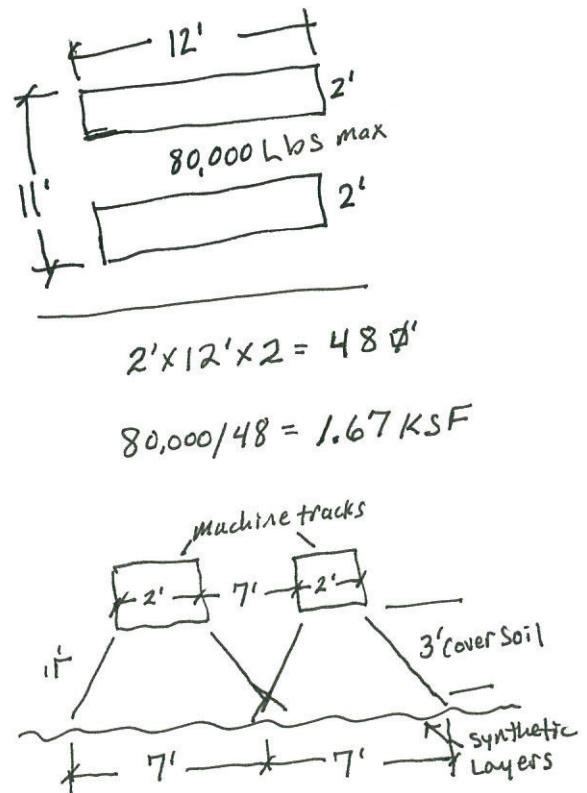 12'
2'
80,000 Lbs max
11'
2'
2'x12'x2 = 48 ☐'
80,000/48 = 1.67 KSF
Machine tracks
2' 7' 2'
3' Cover Soil
7' 7'
synthetic
Layers